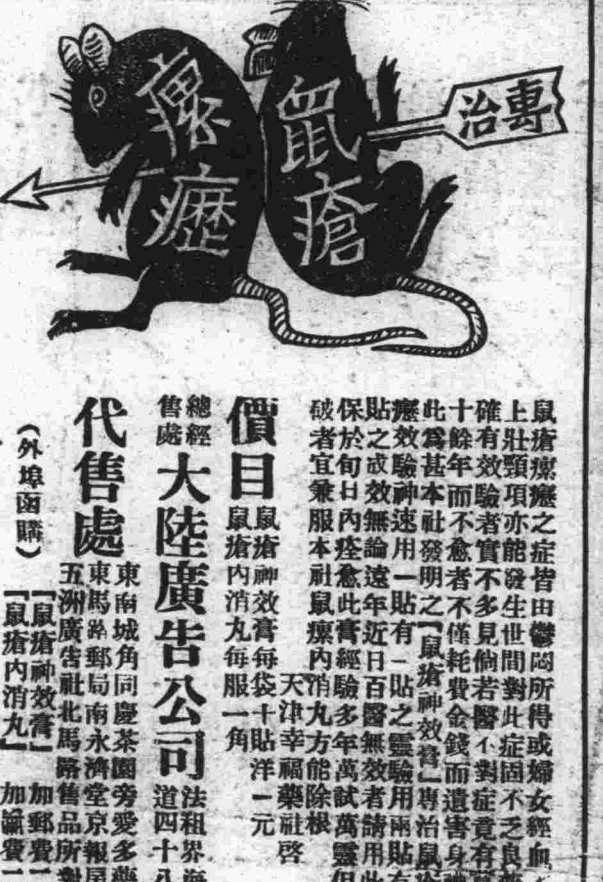 專治
鼠瘡
瘰癧
鼠瘡瘰癧之症皆由鬱悶所得或婦女經血
上壯頸項亦能發生世間對此症固不乏良
確有效驗者實不多見倘若醫不對症竟有
十餘年而不愈者不僅耗費金錢而遺害身
此爲甚本社發明之「鼠瘡神效膏」專治鼠
癧效驗神速用一貼有一貼之靈驗用兩貼
貼之成效無論遠年近日百醫無效者請用此
保於旬日內痊愈此膏經驗多年萬試萬靈但
破者宜兼服本社鼠瘰內消丸方能除根
天津幸福藥社啓
價目
鼠瘡神效膏每袋十貼洋一元
鼠瘡內消丸每服一角
總經售處
大陸廣告公司
法租界
道四十八
代售處
東南城角同慶茶園旁愛多
東馬路郵局南永濟堂京報
五洲廣告社北馬路售品所對
(外埠函購)
「鼠瘡神效膏」加郵費一
「鼠瘡內消丸」加